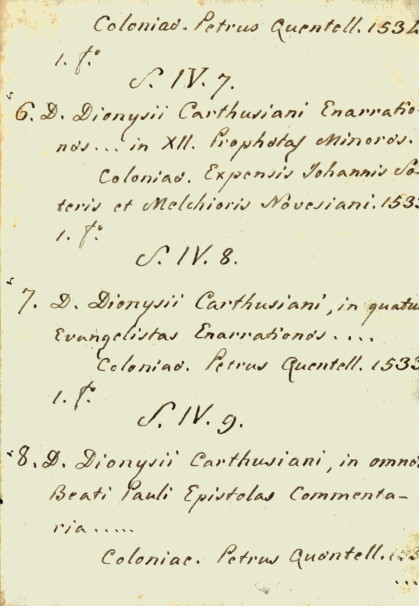 Coloniae. Petrus Quentell. 153
1. f.º
S. IV. 7.
6. D. Dionysii Carthusiani Enarratio-
nes... in XII. Prophetas Minores.
Coloniae. Expensis Iohannis So-
teris et Melchioris Novesiani. 153
1. f.º
S. IV. 8.
7. D. Dionysii Carthusiani, in quatu
Evangelistas Enarrationes....
Coloniae. Petrus Quentell. 1533
1. f.º
S. IV. 9.
8. D. Dionysii Carthusiani, in omne
Beati Pauli Epistolas Commenta-
ria.....
Coloniae. Petrus Quentell.
....